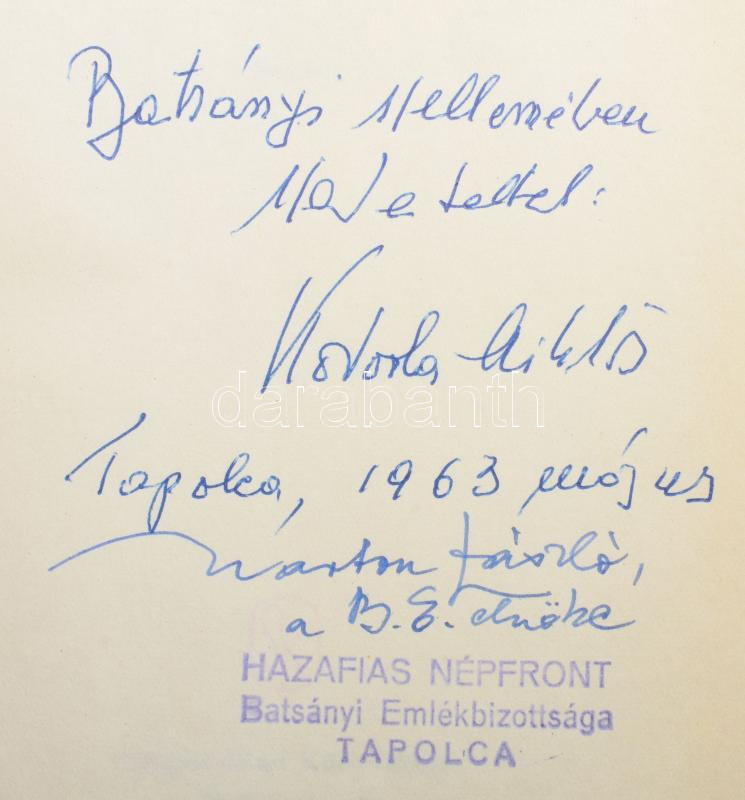 Batsányi szellemében
szeretettel:
Miklós
darabanth
Tapolca, 1963 május
Marton László,
a B. E. elnöke
HAZAFIAS NÉPFRONT
Batsányi Emlékbizottsága
TAPOLCA